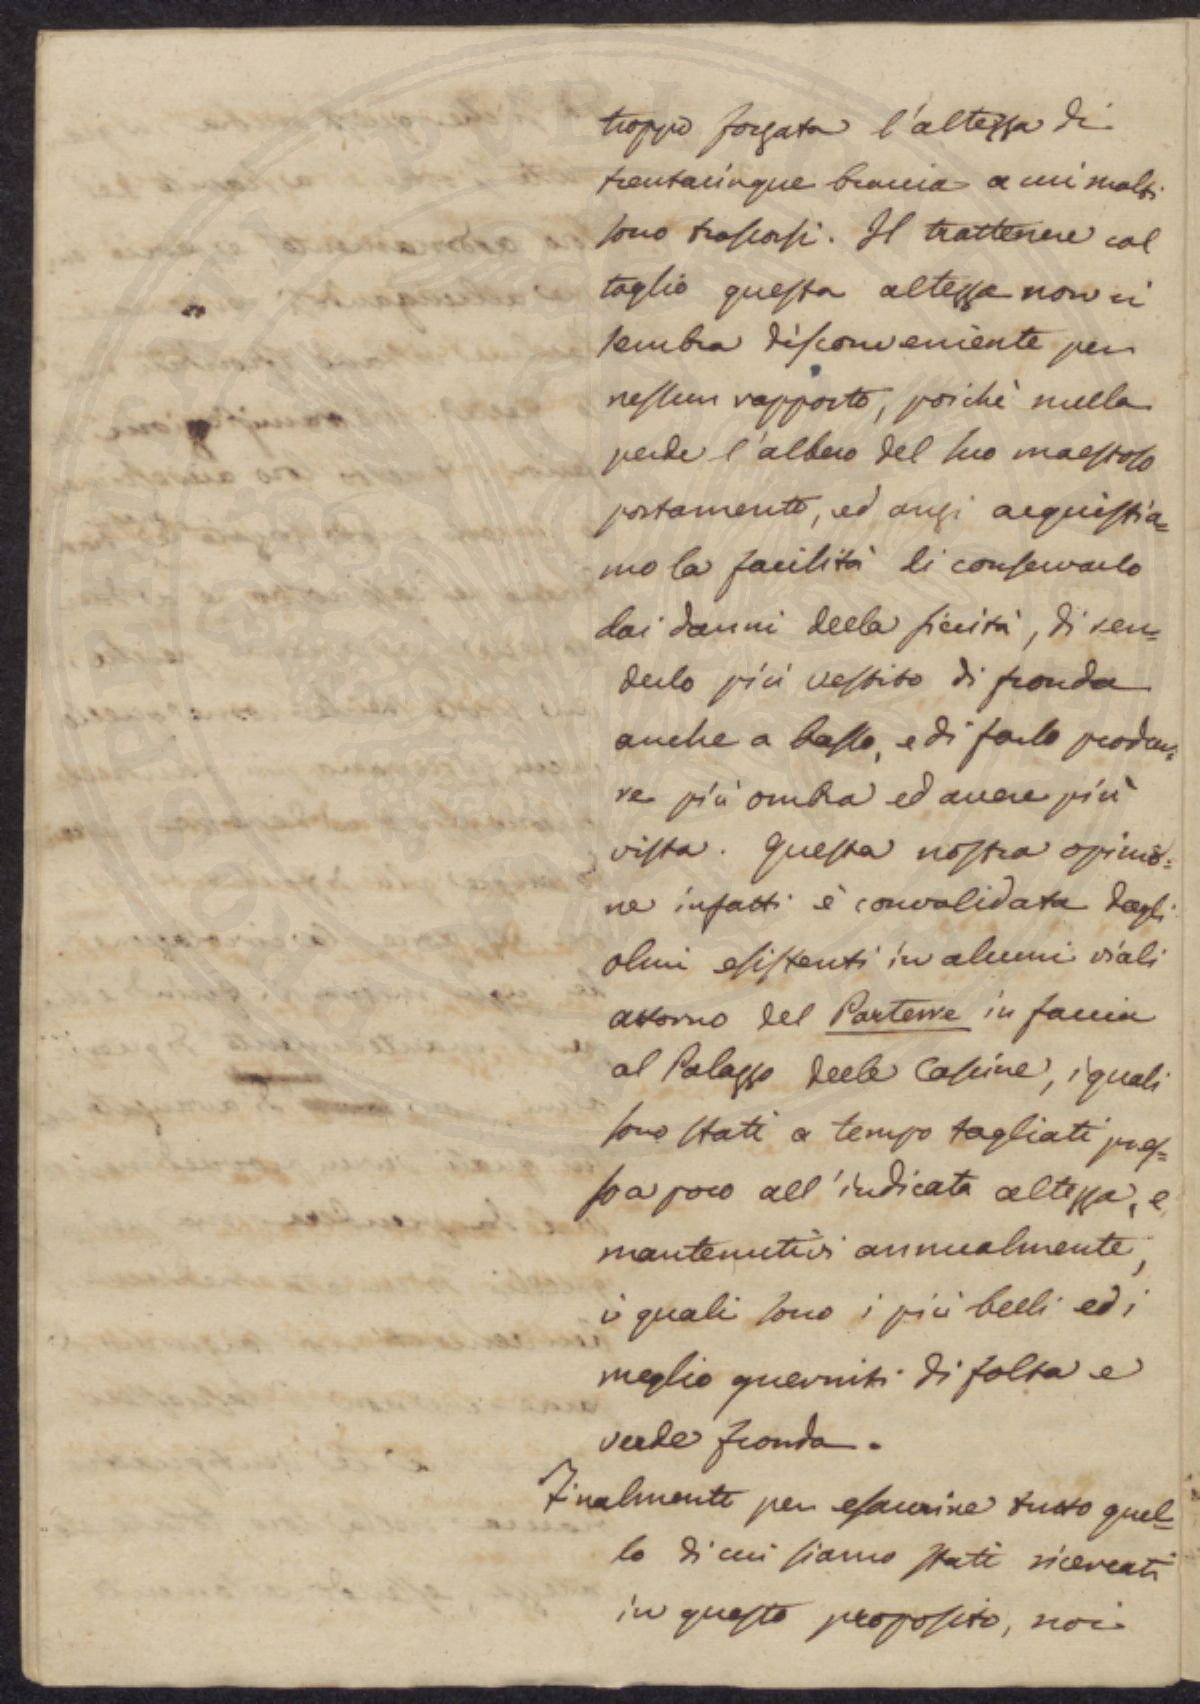 troppo forzata l'altezza di
trentacinque braccia a cui molti
sono trascorsi. Il trattenere col
taglio questa altezza non ci
sembra disconveniente per
nessun rapporto, poichè nulla
perde l'albero del suo maestoso
portamento, ed anzi acquistia=
mo la facilità di conservarlo
dai danni della siccità, di ren=
derlo più vestito di fronda
anche a basso, e di farlo produr=
re più ombra ed avere più
vista. Questa nostra opinio=
ne infatti è convalidata dagli
olmi esistenti in alcuni viali
attorno del Parterre in faccia
al Palazzo delle Cascine, i quali
sono stati a tempo tagliati pres=
so a poco all'indicata altezza, e
mantenutivi annualmente,
i quali sono i più belli ed i
meglio guerniti di folta e
verde fronda.
Finalmente per esaurire tutto quel=
lo di cui siamo stati ricercati
in questo proposito, noi